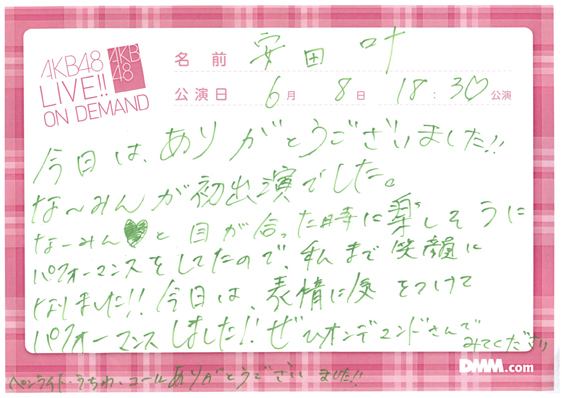 AKB48
LIVE!!
ON DEMAND
AKB
48
名前 安田 叶
公演日 6月 8日 18:30公演
今日は、ありがとうございました!!
な〜みんが初出演でした。
なーみん♥と目が合った時に楽しそうに
パフォーマンスをしてたので、私まで笑顔に
なりました!! 今日は、表情に気をつけて
パフォーマンスしました!! ぜひオンデマンドさんで
みてください
DMM.com
ペンライト・うちわ・コールありがとうございました!!